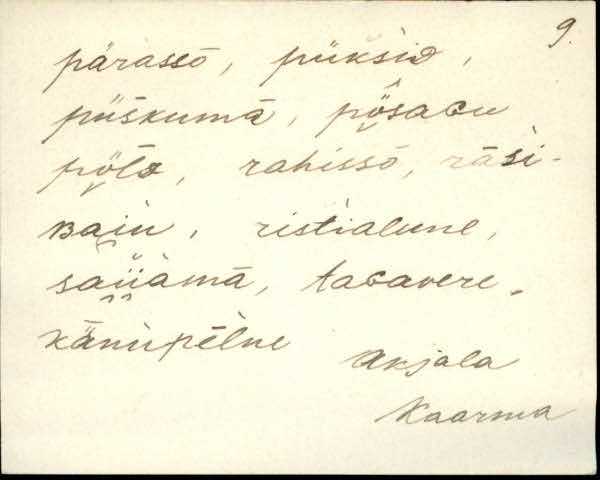 9.
pärässö, püksiD,
püškumā, põ̭saGu
põ̭lD, rahissō, räsi-
BaìU, ristialune,
sau̬àmā, taGavere,
känìpēlne
Anjala
Kaarma